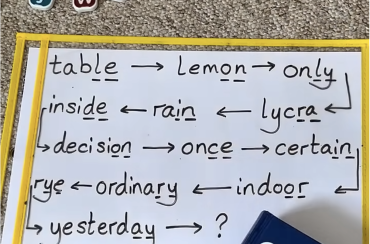 table → lemon → only
inside ← rain ← lycra
decision → once → certain
rye ← ordinary ← indoor
yesterday → ?